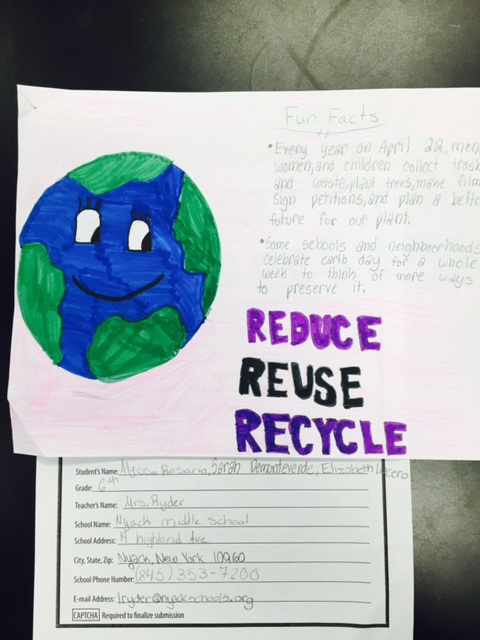 Fun Facts
• Every year on April 22, men,
women, and children collect trash
and waste, plant trees, make film
sign petitions, and plan a bette
future for our plant.
• Some schools and neighboorhoods
celebrate earth day for a whole
week to think of more ways
to preserve it.
REDUCE
REUSE
RECYCLE
Student's Name: Alyssa Rosario, Sarah Demonteverde, Elizabeth
Grade: 6th
Teacher's Name: Mrs. Ryder
School Name: Nyack middle school
School Address: highland Ave
City, State, Zip: Nyack, New York 10960
School Phone Number: (845) 353-7200
E-mail Address: lryder@nyackschools.org
CAPTCHA Required to finalize submission